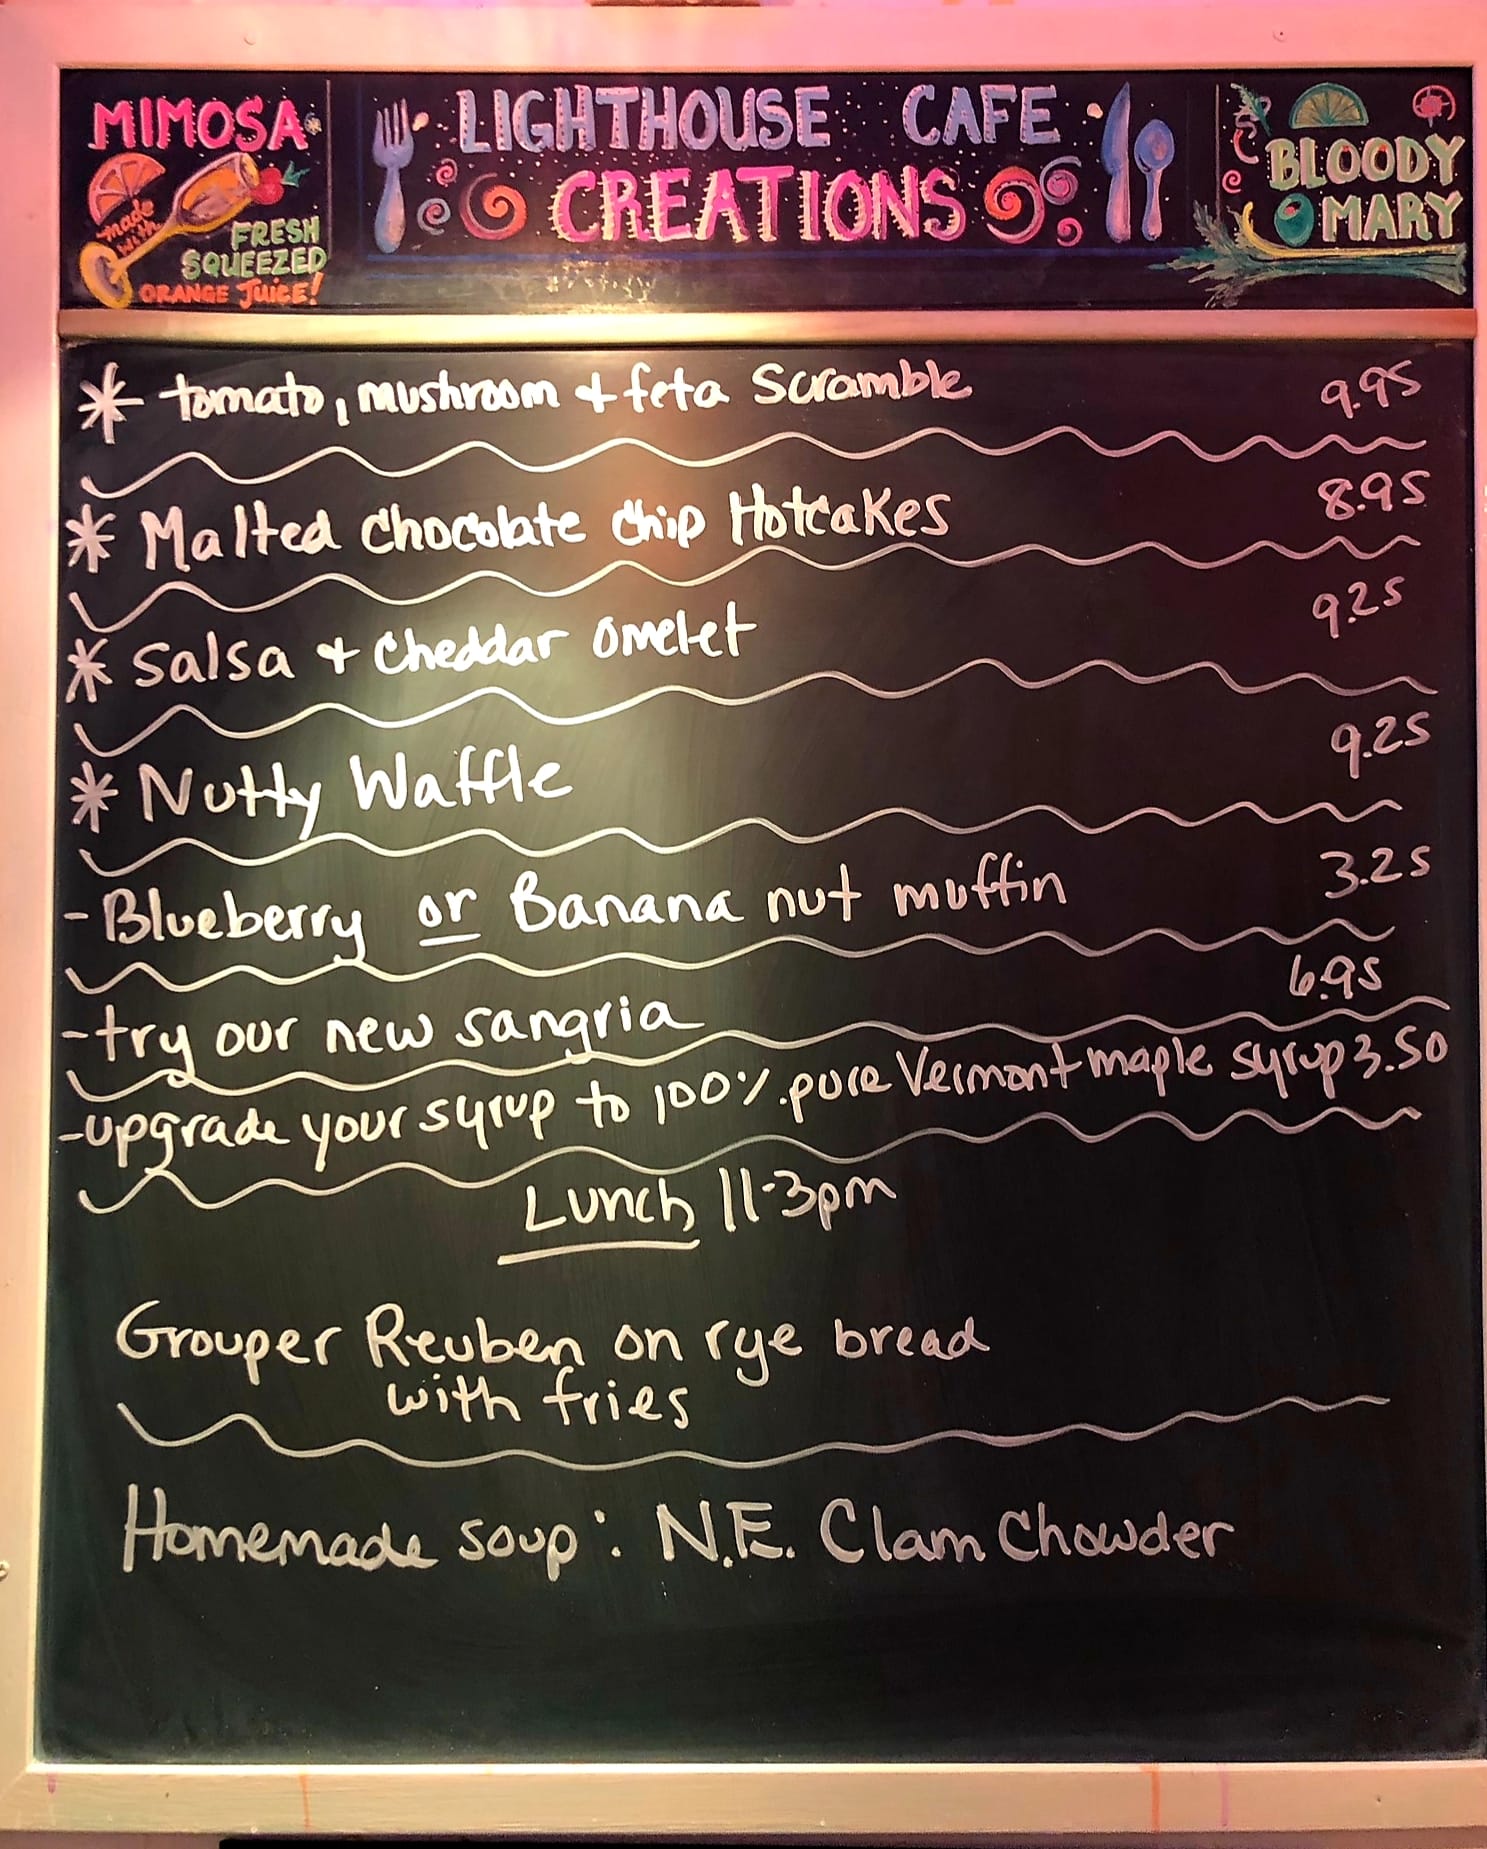 MIMOSA
made
with
FRESH
SQUEEZED
ORANGE JUICE!
LIGHTHOUSE CAFE
CREATIONS
BLOODY
MARY
* tomato, mushroom + feta Scramble 9.95
* Malted Chocolate Chip Hotcakes 8.95
* Salsa + Cheddar Omelet 9.25
* Nutty Waffle 9.25
- Blueberry or Banana nut muffin 3.25
- try our new sangria 6.95
- upgrade your syrup to 100% pure Vermont maple syrup 3.50
Lunch 11-3pm
Grouper Reuben on rye bread
with fries
Homemade soup: N.E. Clam Chowder